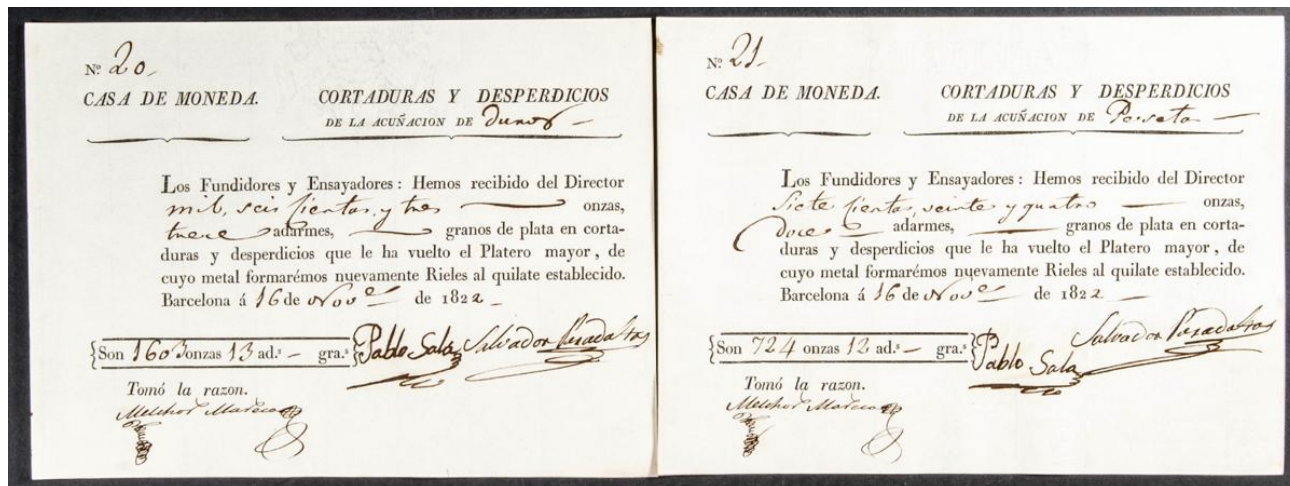 Nº 20_
CASA DE MONEDA. CORTADURAS Y DESPERDICIOS
DE LA ACUÑACION DE Duros_
Los Fundidores y Ensayadores: Hemos recibido del Director
mil, seis cientas, y tres onzas,
trece adarmes, granos de plata en corta-
duras y desperdicios que le ha vuelto el Platero mayor, de
cuyo metal formarémos nuevamente Rieles al quilate establecido.
Barcelona á 16 de Nov.e de 1822_
Son 1603 onzas 13 ad.s _ gra.s Pablo Sala Salvador
Tomó la razon.
Melchor
Nº 21_
CASA DE MONEDA. CORTADURAS Y DESPERDICIOS
DE LA ACUÑACION DE Peseta_
Los Fundidores y Ensayadores: Hemos recibido del Director
Siete cientas, veinte y quatro onzas,
Doce adarmes, granos de plata en corta-
duras y desperdicios que le ha vuelto el Platero mayor, de
cuyo metal formarémos nuevamente Rieles al quilate establecido.
Barcelona á 16 de Nov.e de 1822_
Son 724 onzas 12 ad.s _ gra.s Pablo Sala Salvador
Tomó la razon.
Melchor